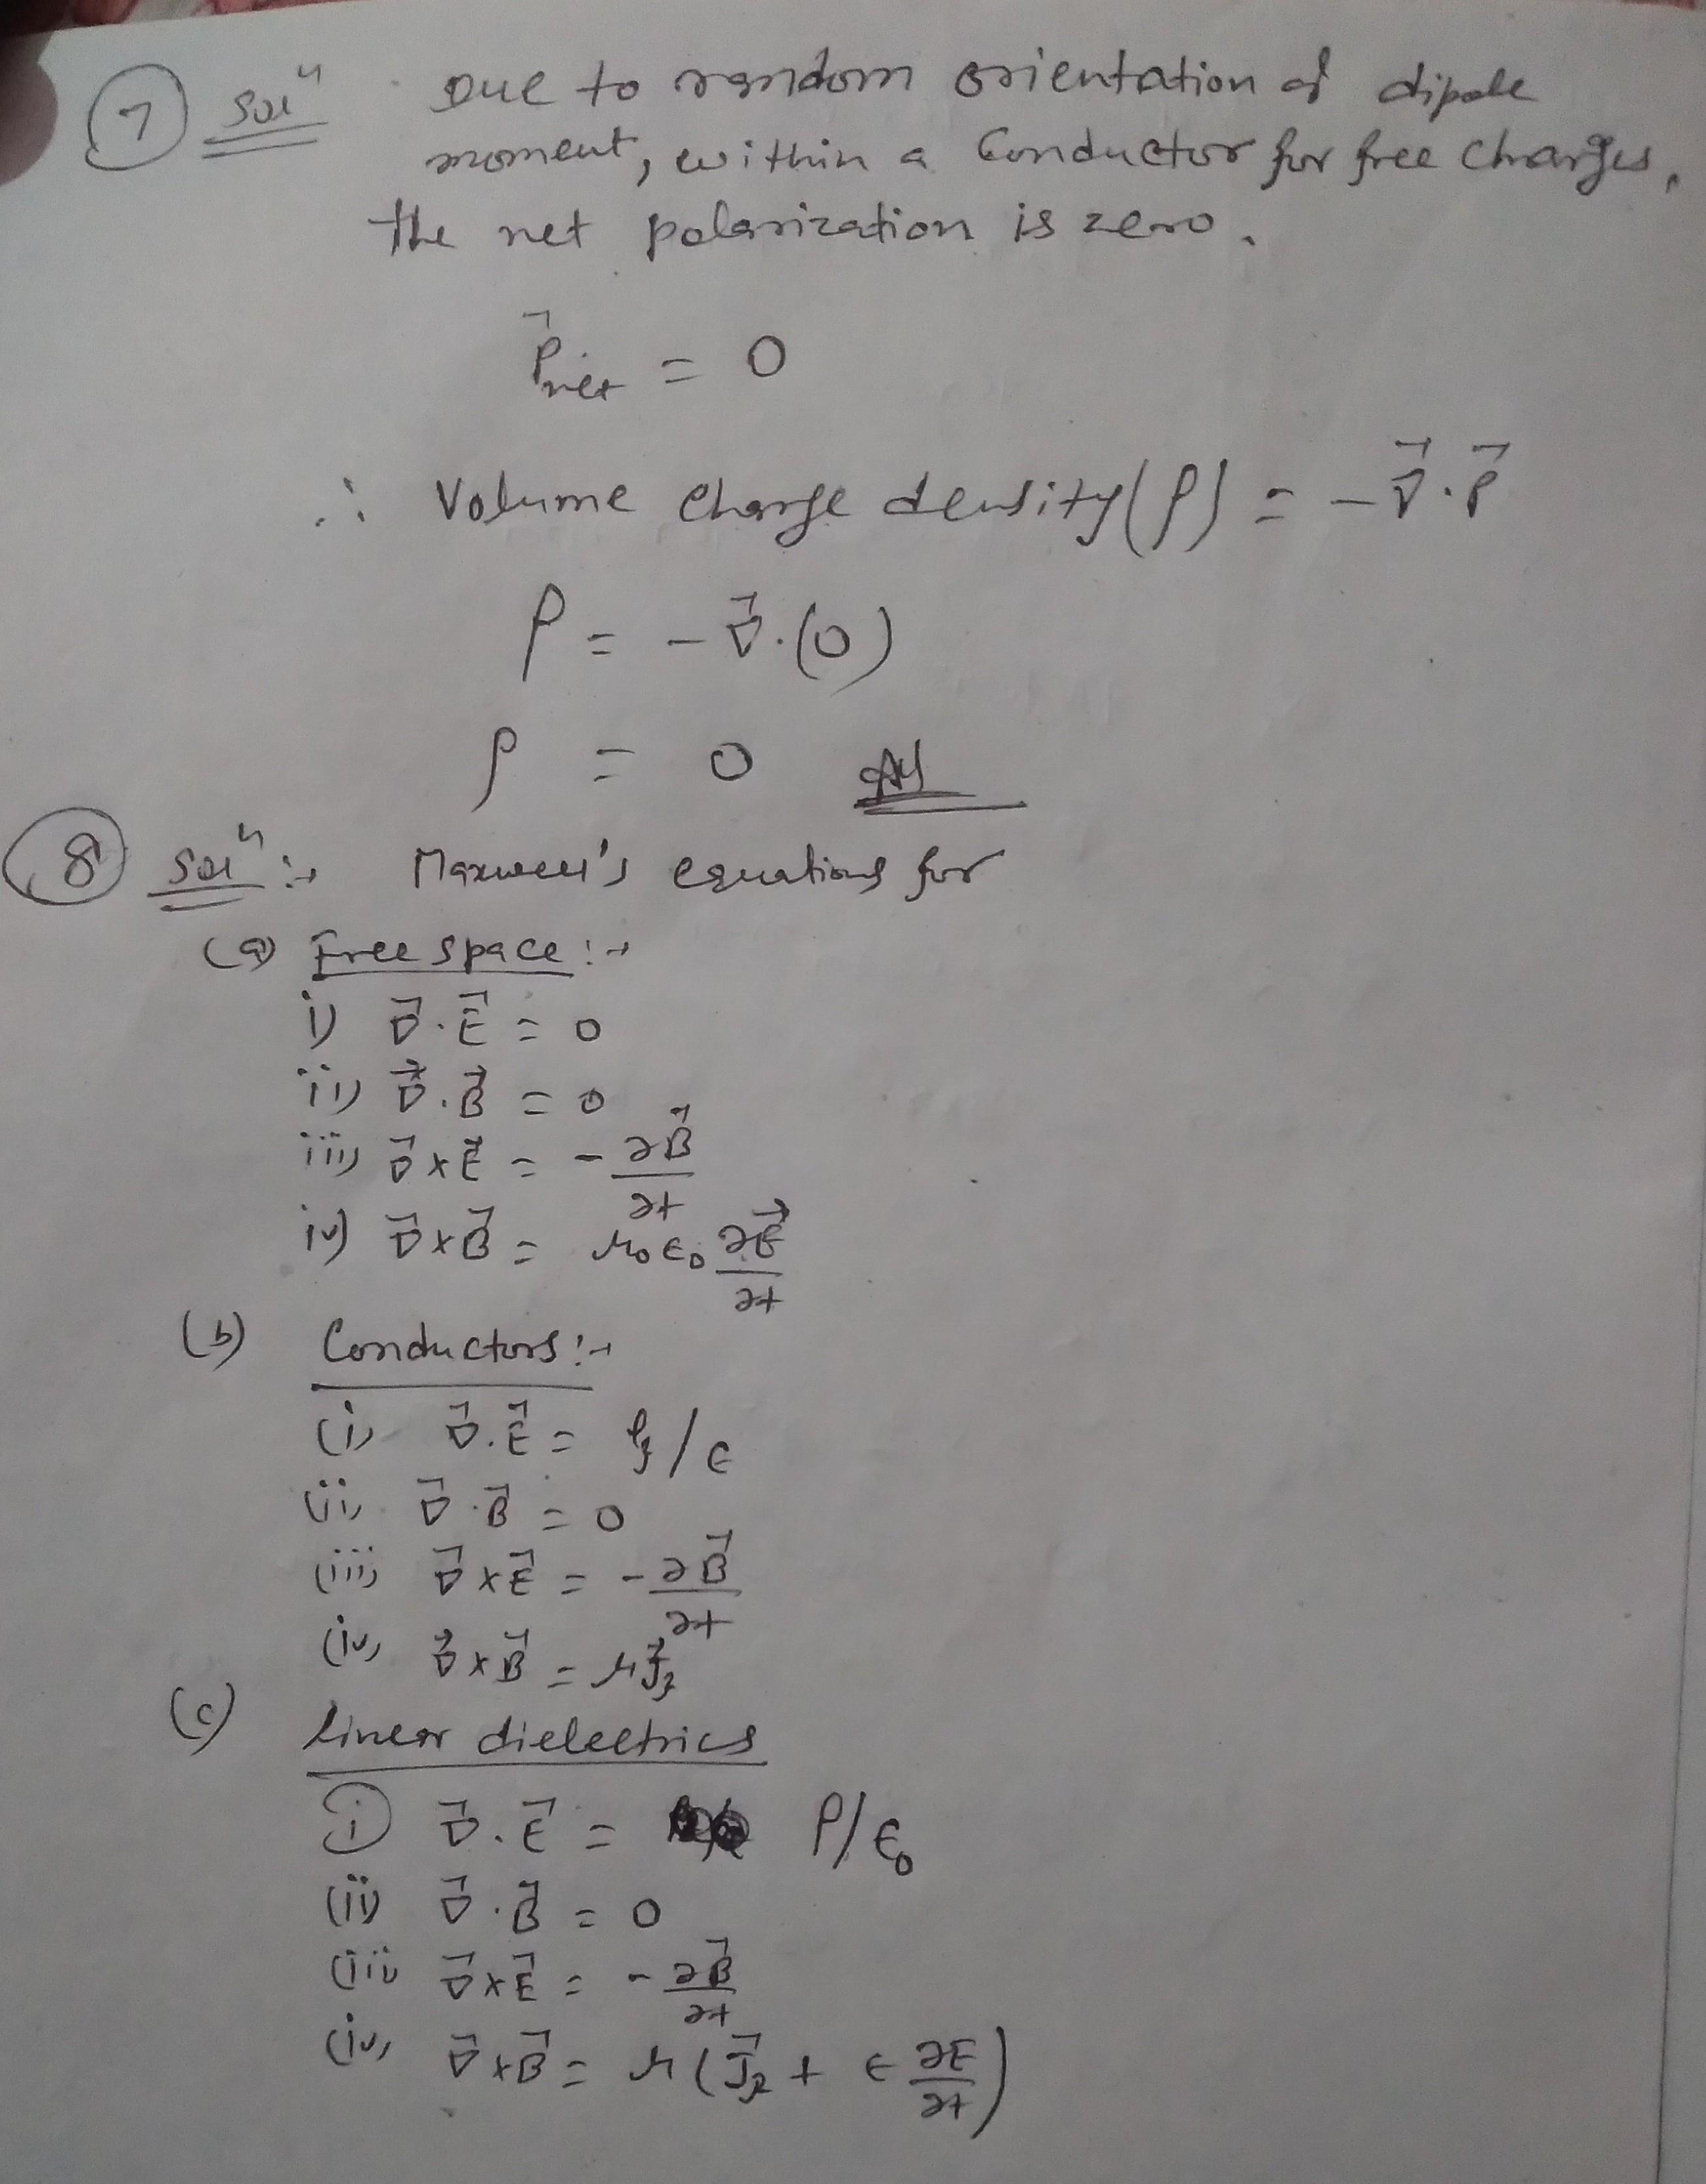 7 Solⁿ Due to random orientation of dipole
moment, within a Conductor for free charges,
the net polarization is zero.
P⃗net = 0
∴ Volume charge density(ρ) = -∇⃗.P⃗
ρ = -∇⃗.(0)
ρ = 0
8 Solⁿ :→ Maxwell's equations for
(a) Free space :→
i) ∇⃗.E⃗ = 0
ii) ∇⃗.B⃗ = 0
iii) ∇⃗×E⃗ = -∂B⃗/∂t
iv) ∇⃗×B⃗ = μ₀ε₀ ∂E⃗/∂t
(b) Conductors :→
(i) ∇⃗.E⃗ = ρf/ε
(ii) ∇⃗.B⃗ = 0
(iii) ∇⃗×E⃗ = -∂B⃗/∂t
(iv) ∇⃗×B⃗ = μJ⃗f
(c) linear dielectrics
(i) ∇⃗.E⃗ = ρ/ε₀
(ii) ∇⃗.B⃗ = 0
(iii) ∇⃗×E⃗ = -∂B⃗/∂t
(iv) ∇⃗×B⃗ = μ(J⃗f + ε ∂E/∂t)